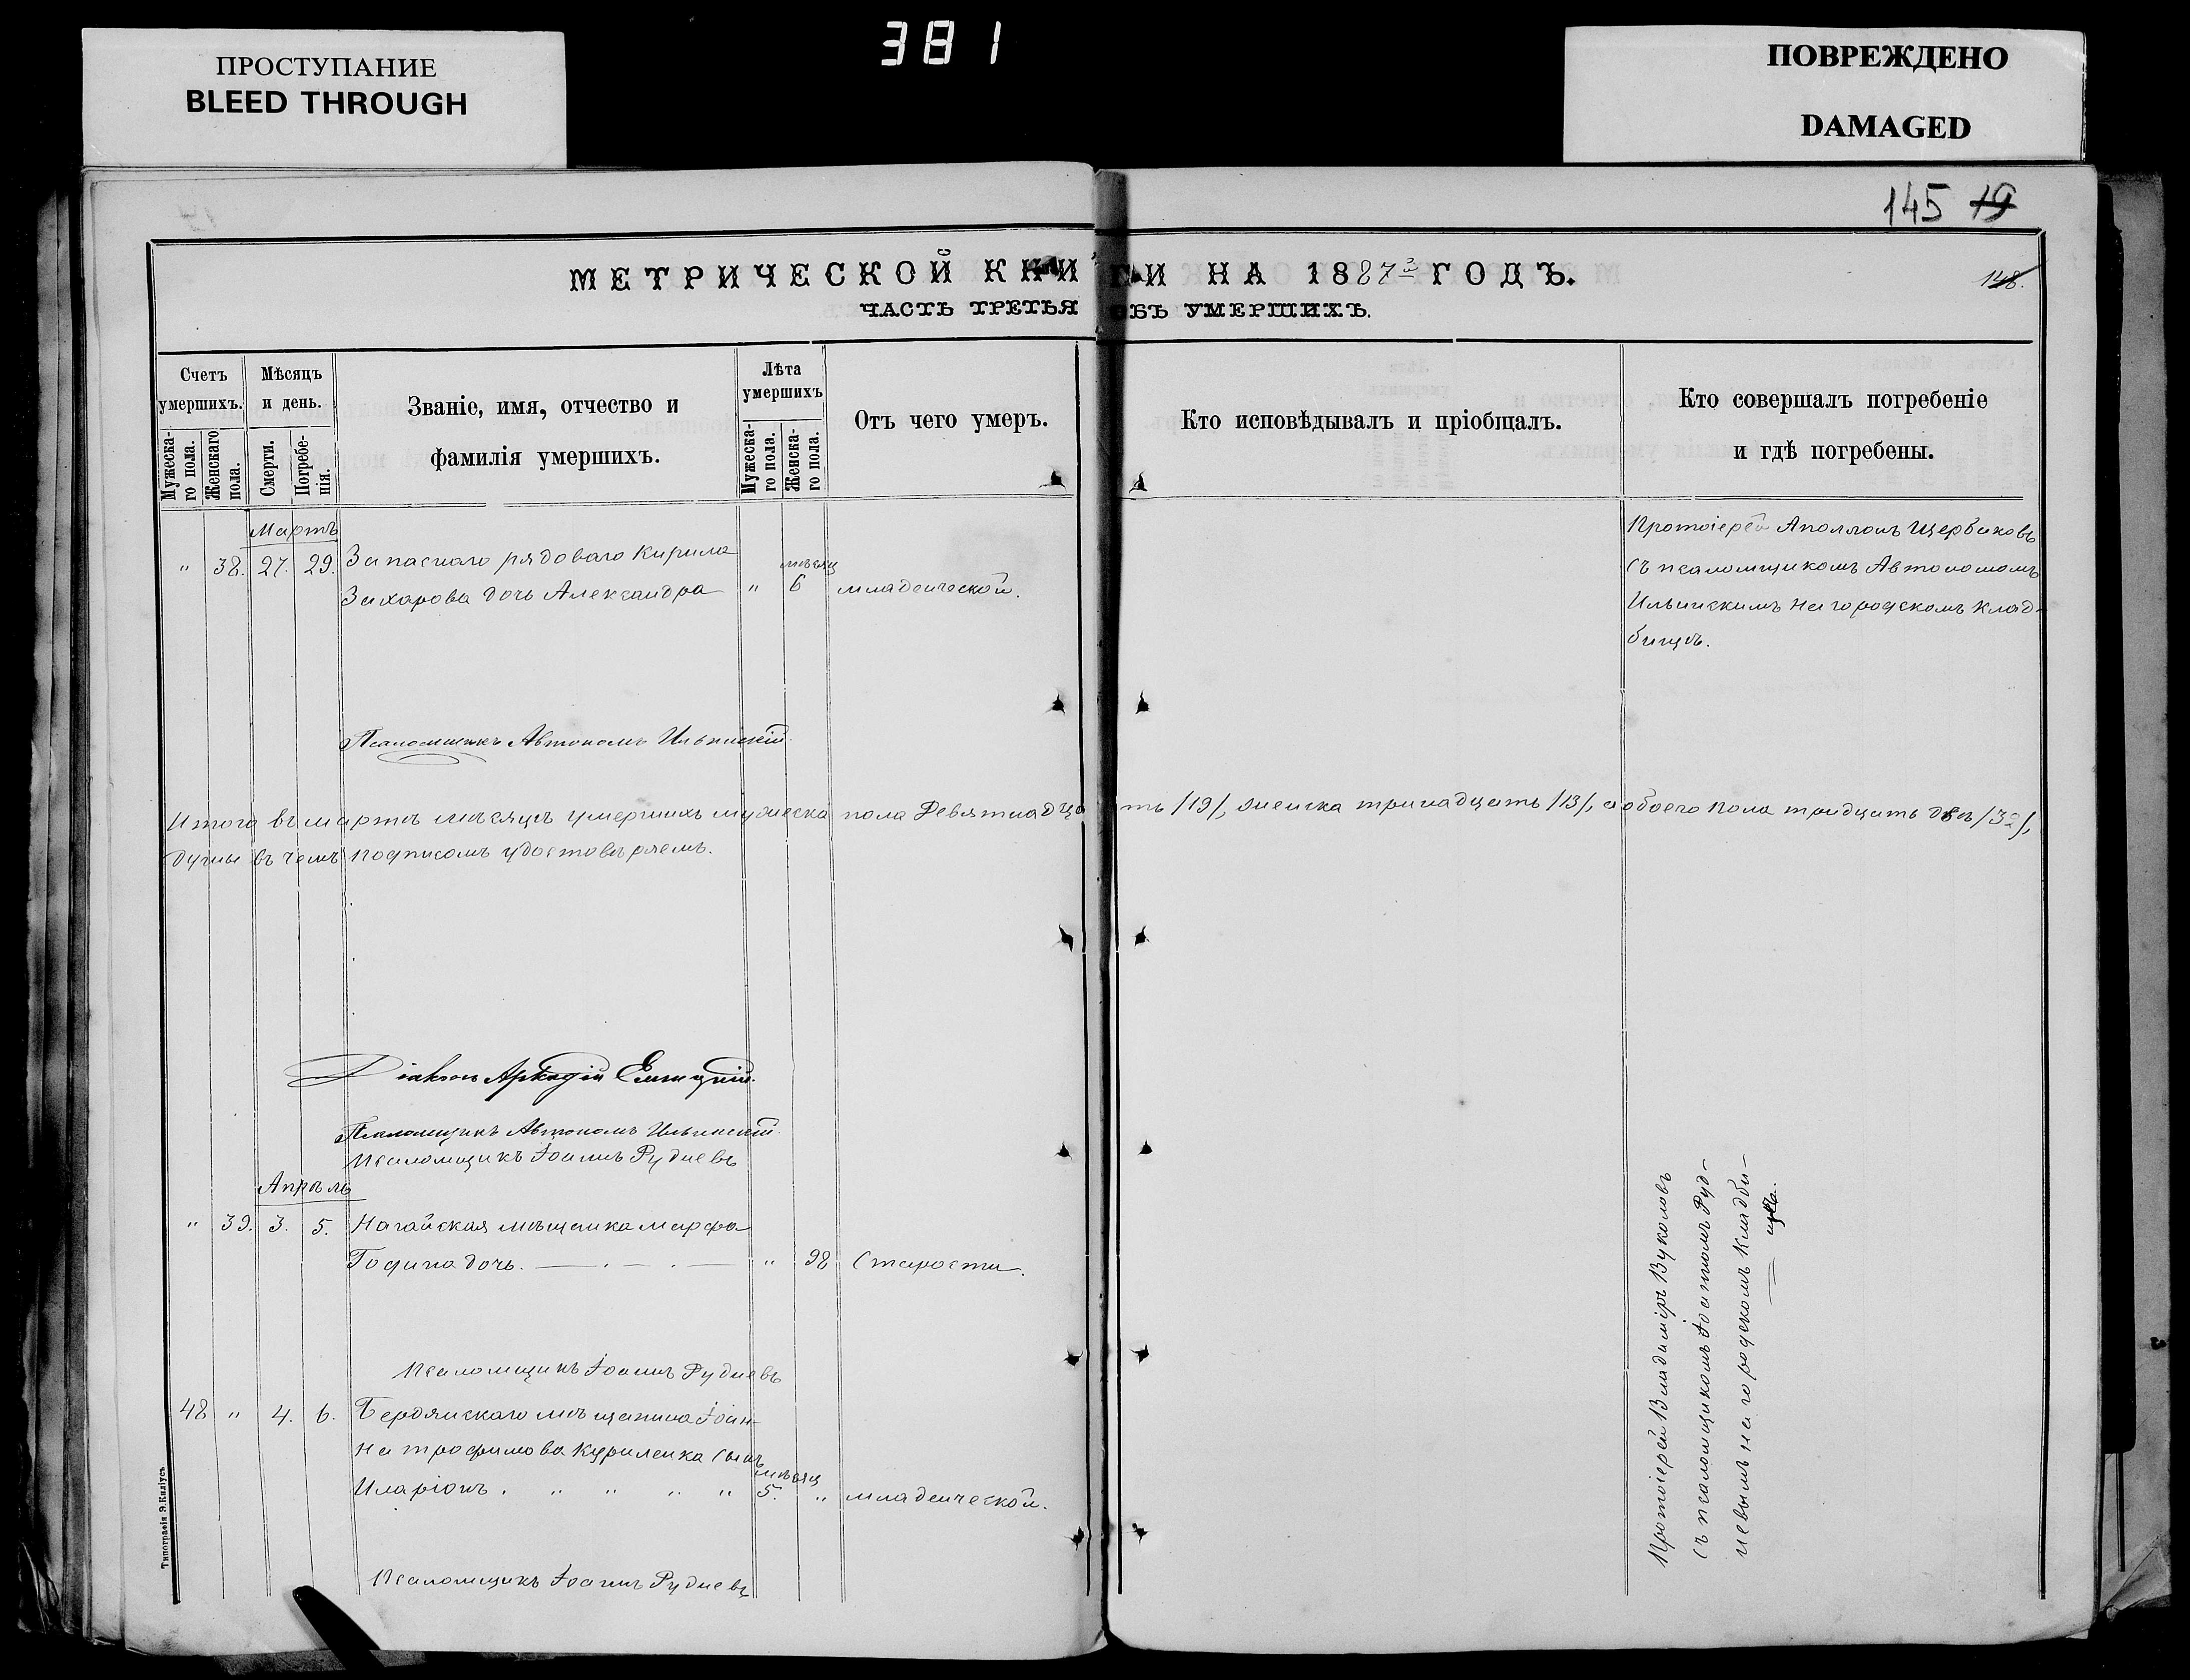 381
ПРОСТУПАНИЕ
BLEED THROUGH
ПОВРЕЖДЕНО
DAMAGED
145 19
МЕТРИЧЕСКОЙ КНИГИ НА 1887 ГОДЪ.
148.
ЧАСТЬ ТРЕТЬЯ ОБЪ УМЕРШИХЪ.
Счетъ умершихъ.
Мужеска-го пола.
Женскаго пола.
Мѣсяцъ и день.
Смерти.
Погребе-нія.
Званіе, имя, отчество и
фамилія умершихъ.
Лѣта умершихъ
Мужеска-го пола.
Женска-го пола.
Отъ чего умеръ.
Кто исповѣдывалъ и пріобщалъ.
Кто совершалъ погребеніе
и гдѣ погребены.
Мартъ
" 38. 27. 29. Запаснаго рядоваго Кирила
Захарова дочь Александра " мѣсяц 6 младенческой.
Протоіерей Аполлонъ Щербаковъ
съ псаломщикомъ Автономомъ
Ильинскимъ на городскомъ клад-
бищѣ.
Псаломщикъ Автономъ Ильинскій.
Итого въ мартѣ мѣсяцѣ умершихъ мужеска пола девятнадцать /19/, женска тринадцать /13/, а обоего пола тридцать двѣ /32/,
душы въ чемъ подписомъ удостовѣряемъ.
Діаконъ Аркадій
Псаломщикъ Автономъ Ильинскій.
Псаломщикъ Іоаннъ Рудневъ
Апрѣль
" 39. 3. 5. Ногайская мѣщанка Марфа
дочь. " 98 Старости.
Псаломщикъ Іоаннъ Рудневъ
48 " 4. 6. Бердянскаго мѣщанина Іоан-
на Трофимова Куриленка сынъ
Иларіонъ . " " " " мѣсяц 5. " младенческой.
Псаломщикъ Іоаннъ Рудневъ
Протоіерей Владиміръ Вуколовъ
съ псаломщикомъ Іоанномъ Руд-
невымъ на городскомъ кладби-
щѣ.
Типографія Э.Киліусъ